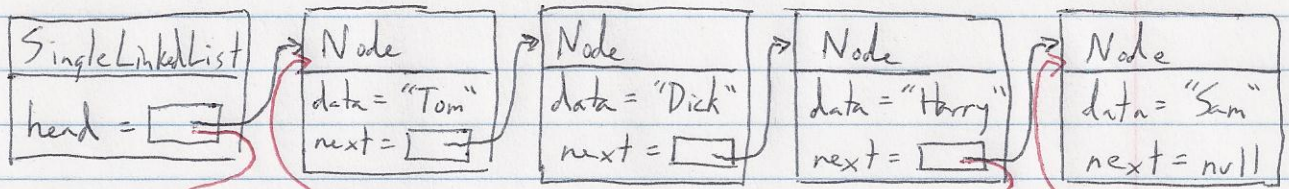 SingleLinkedList
head =
Node
data = "Tom"
next =
Node
data = "Dick"
next =
Node
data = "Harry"
next =
Node
data = "Sam"
next = null